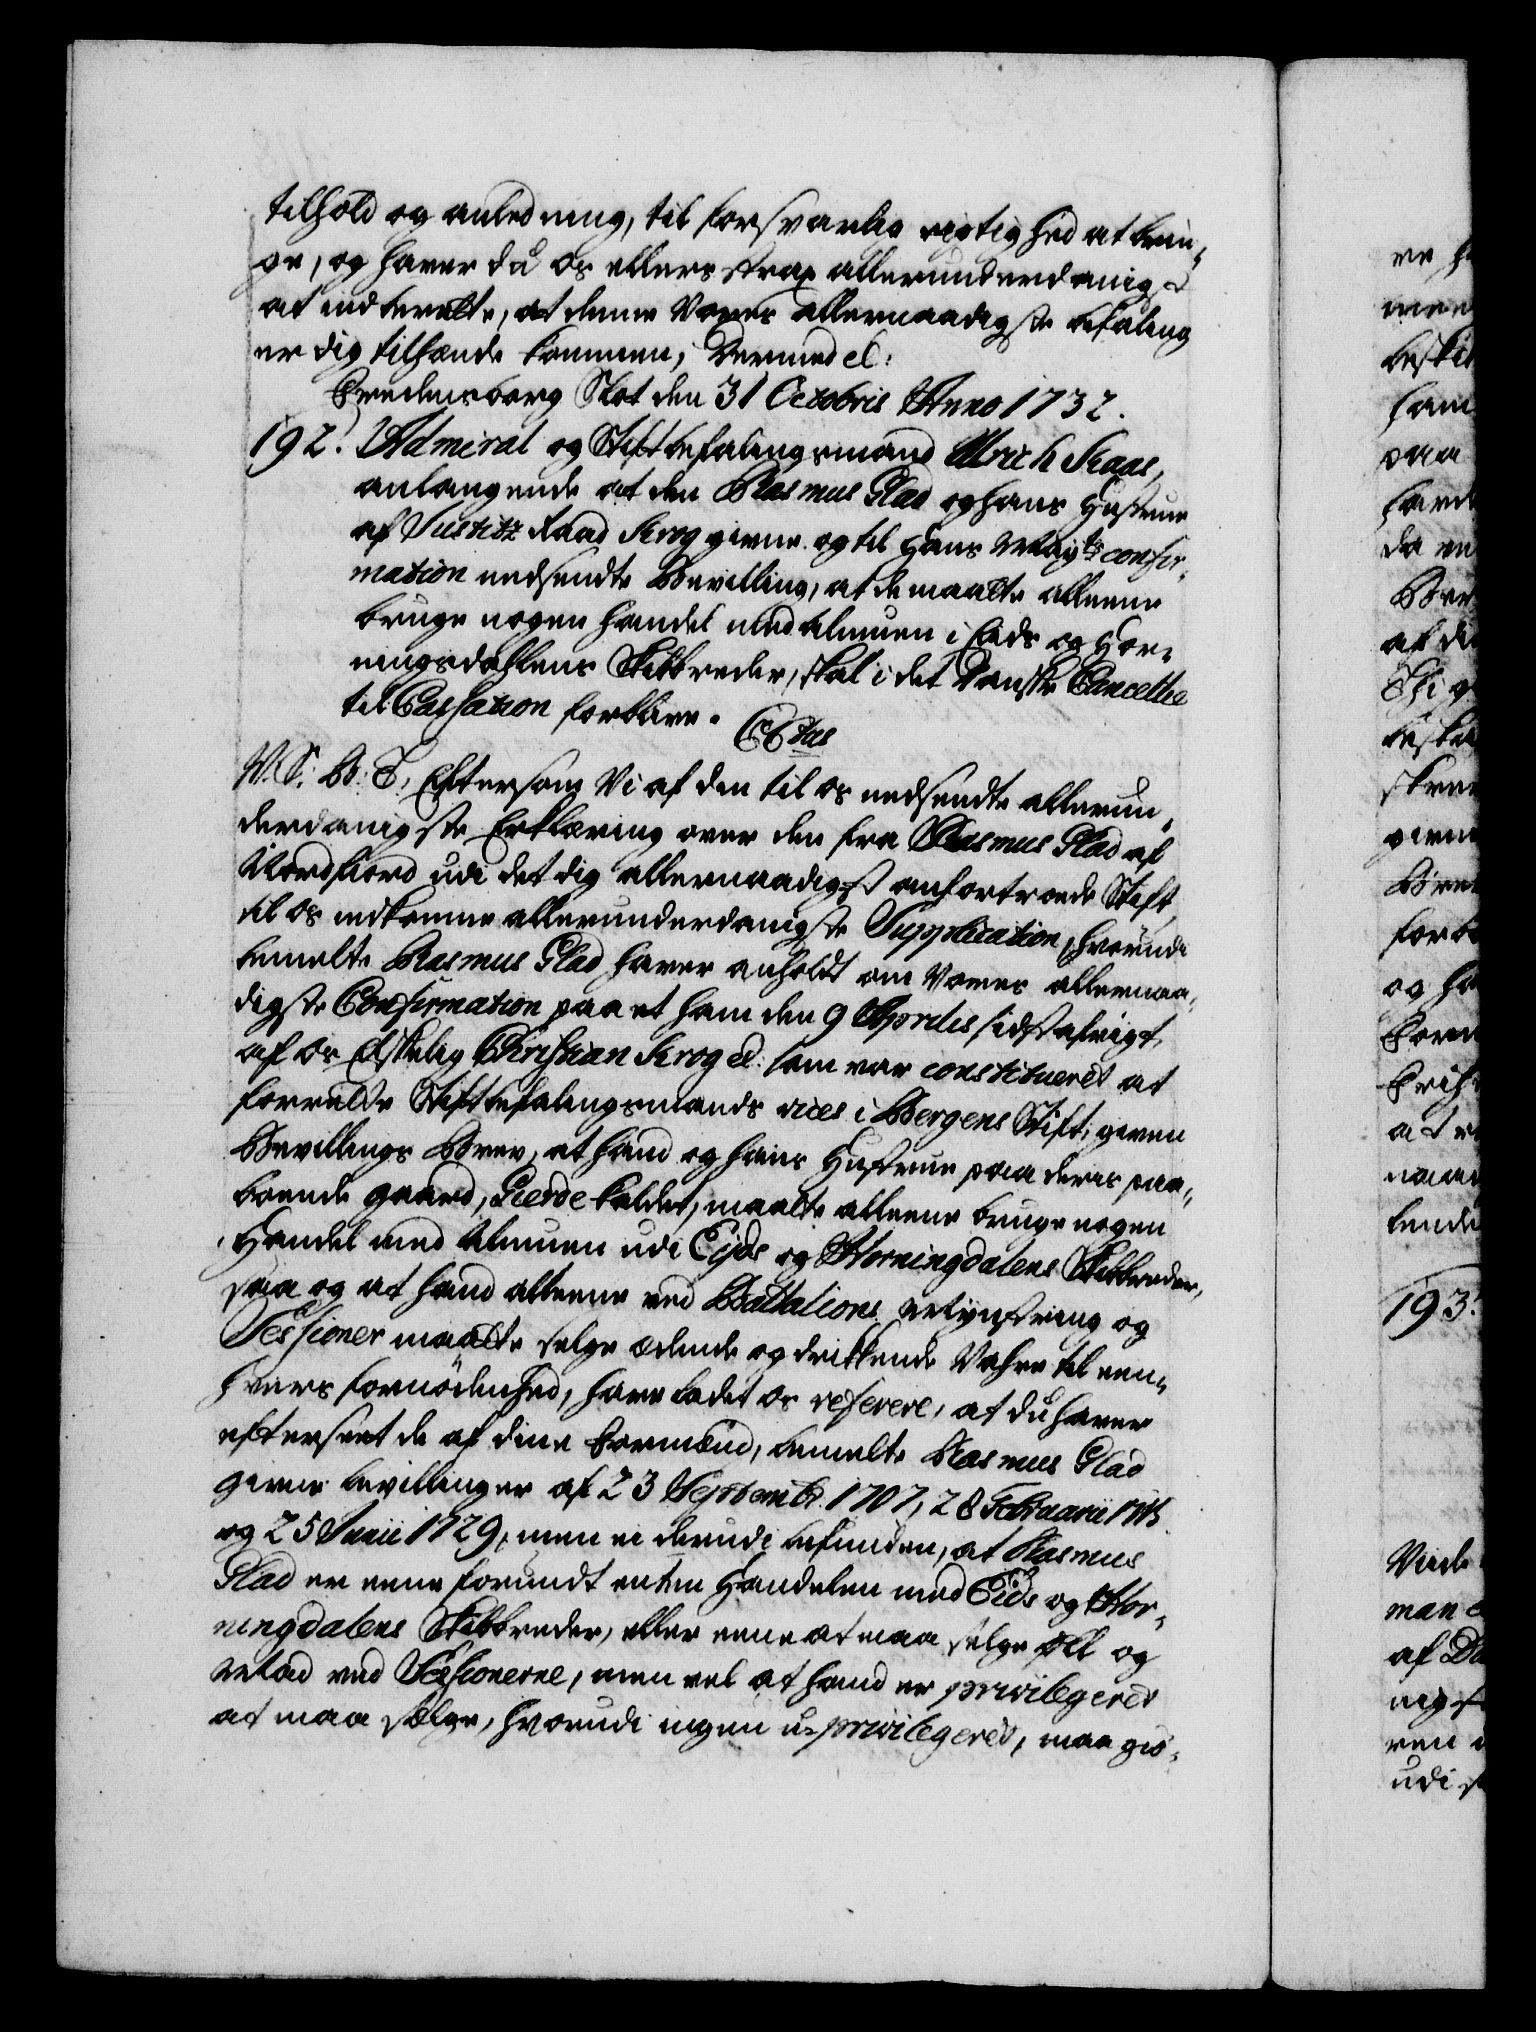 tilhold og anledning, til forsvarlig rigtighed at brin-
ge, og haver du os ellers strax allerunderdanigst
at indberette, at denne Vores allernaadigste befaling
er dig tilhænde kommen, Dermed etc:
Fredensborg Slot den 31 Octobris Anno 1732.
192. Admiral og Stiftbefalingsmand Ulrich Kaas,
anlangende at den Rasmus Glad og hans Hustrue
af Justitz Raad Krog givne og til Hans Mayts confir-
mation nedsendte Bevilling, at de maatte alleene
bruge nogen handel med almuen i Eids og Hor-
ningsdahlens Skibbreder, skal i det Danske Cancellie
til Cassation forblive.
V. S. B. T. Eftersom Vi af den til os nedsendte allerun-
derdanigste Erklæring over den fra Rasmus Glad af
Nordfiord udi det dig allernaadigst anfortroede Stift,
til os indkomne allerunderdanigste Supplication, hvorudi
bemelte Rasmus Glad haver anholdt om Vores allernaa-
digste Confirmation paa et ham den 9 Aprilis sidst afvigt,
af os Elskelig Christian Krog etc: som var constitueret at
forrette Stiftbefalingsmands vices i Bergens Stift, given
Bevillings Brev, at hand og hans Hustrue paa deres paa-
boende gaard, Gierde kaldet, maatte alleene bruge nogen
Handel med Almuen udi Eids og Horningdalens Skibbreder,
saa og at hand alleene ved Battalions Mynstring og
Sessioner maatte selge ædende og drikkende Vahre til een-
hvers fornödenhed, have ladet os referere, at du haver
efterseet de af dine Formænd, bemelte Rasmus Glad
givne bevillinger af 23 Septembr. 1707, 28 Februarii
og 25 Junii 1729, men ei derudi befunden, at Rasmus
Glad er eene forundt enten Handelen med Eids og Hor-
ningdalens Skibbreder, eller eene at maa selge Öll og
Mad ved Sessionerne, men vel at hand er privilegeret
at maa selge, hvorudi ingen u-privilegeret, maa giö-
193.